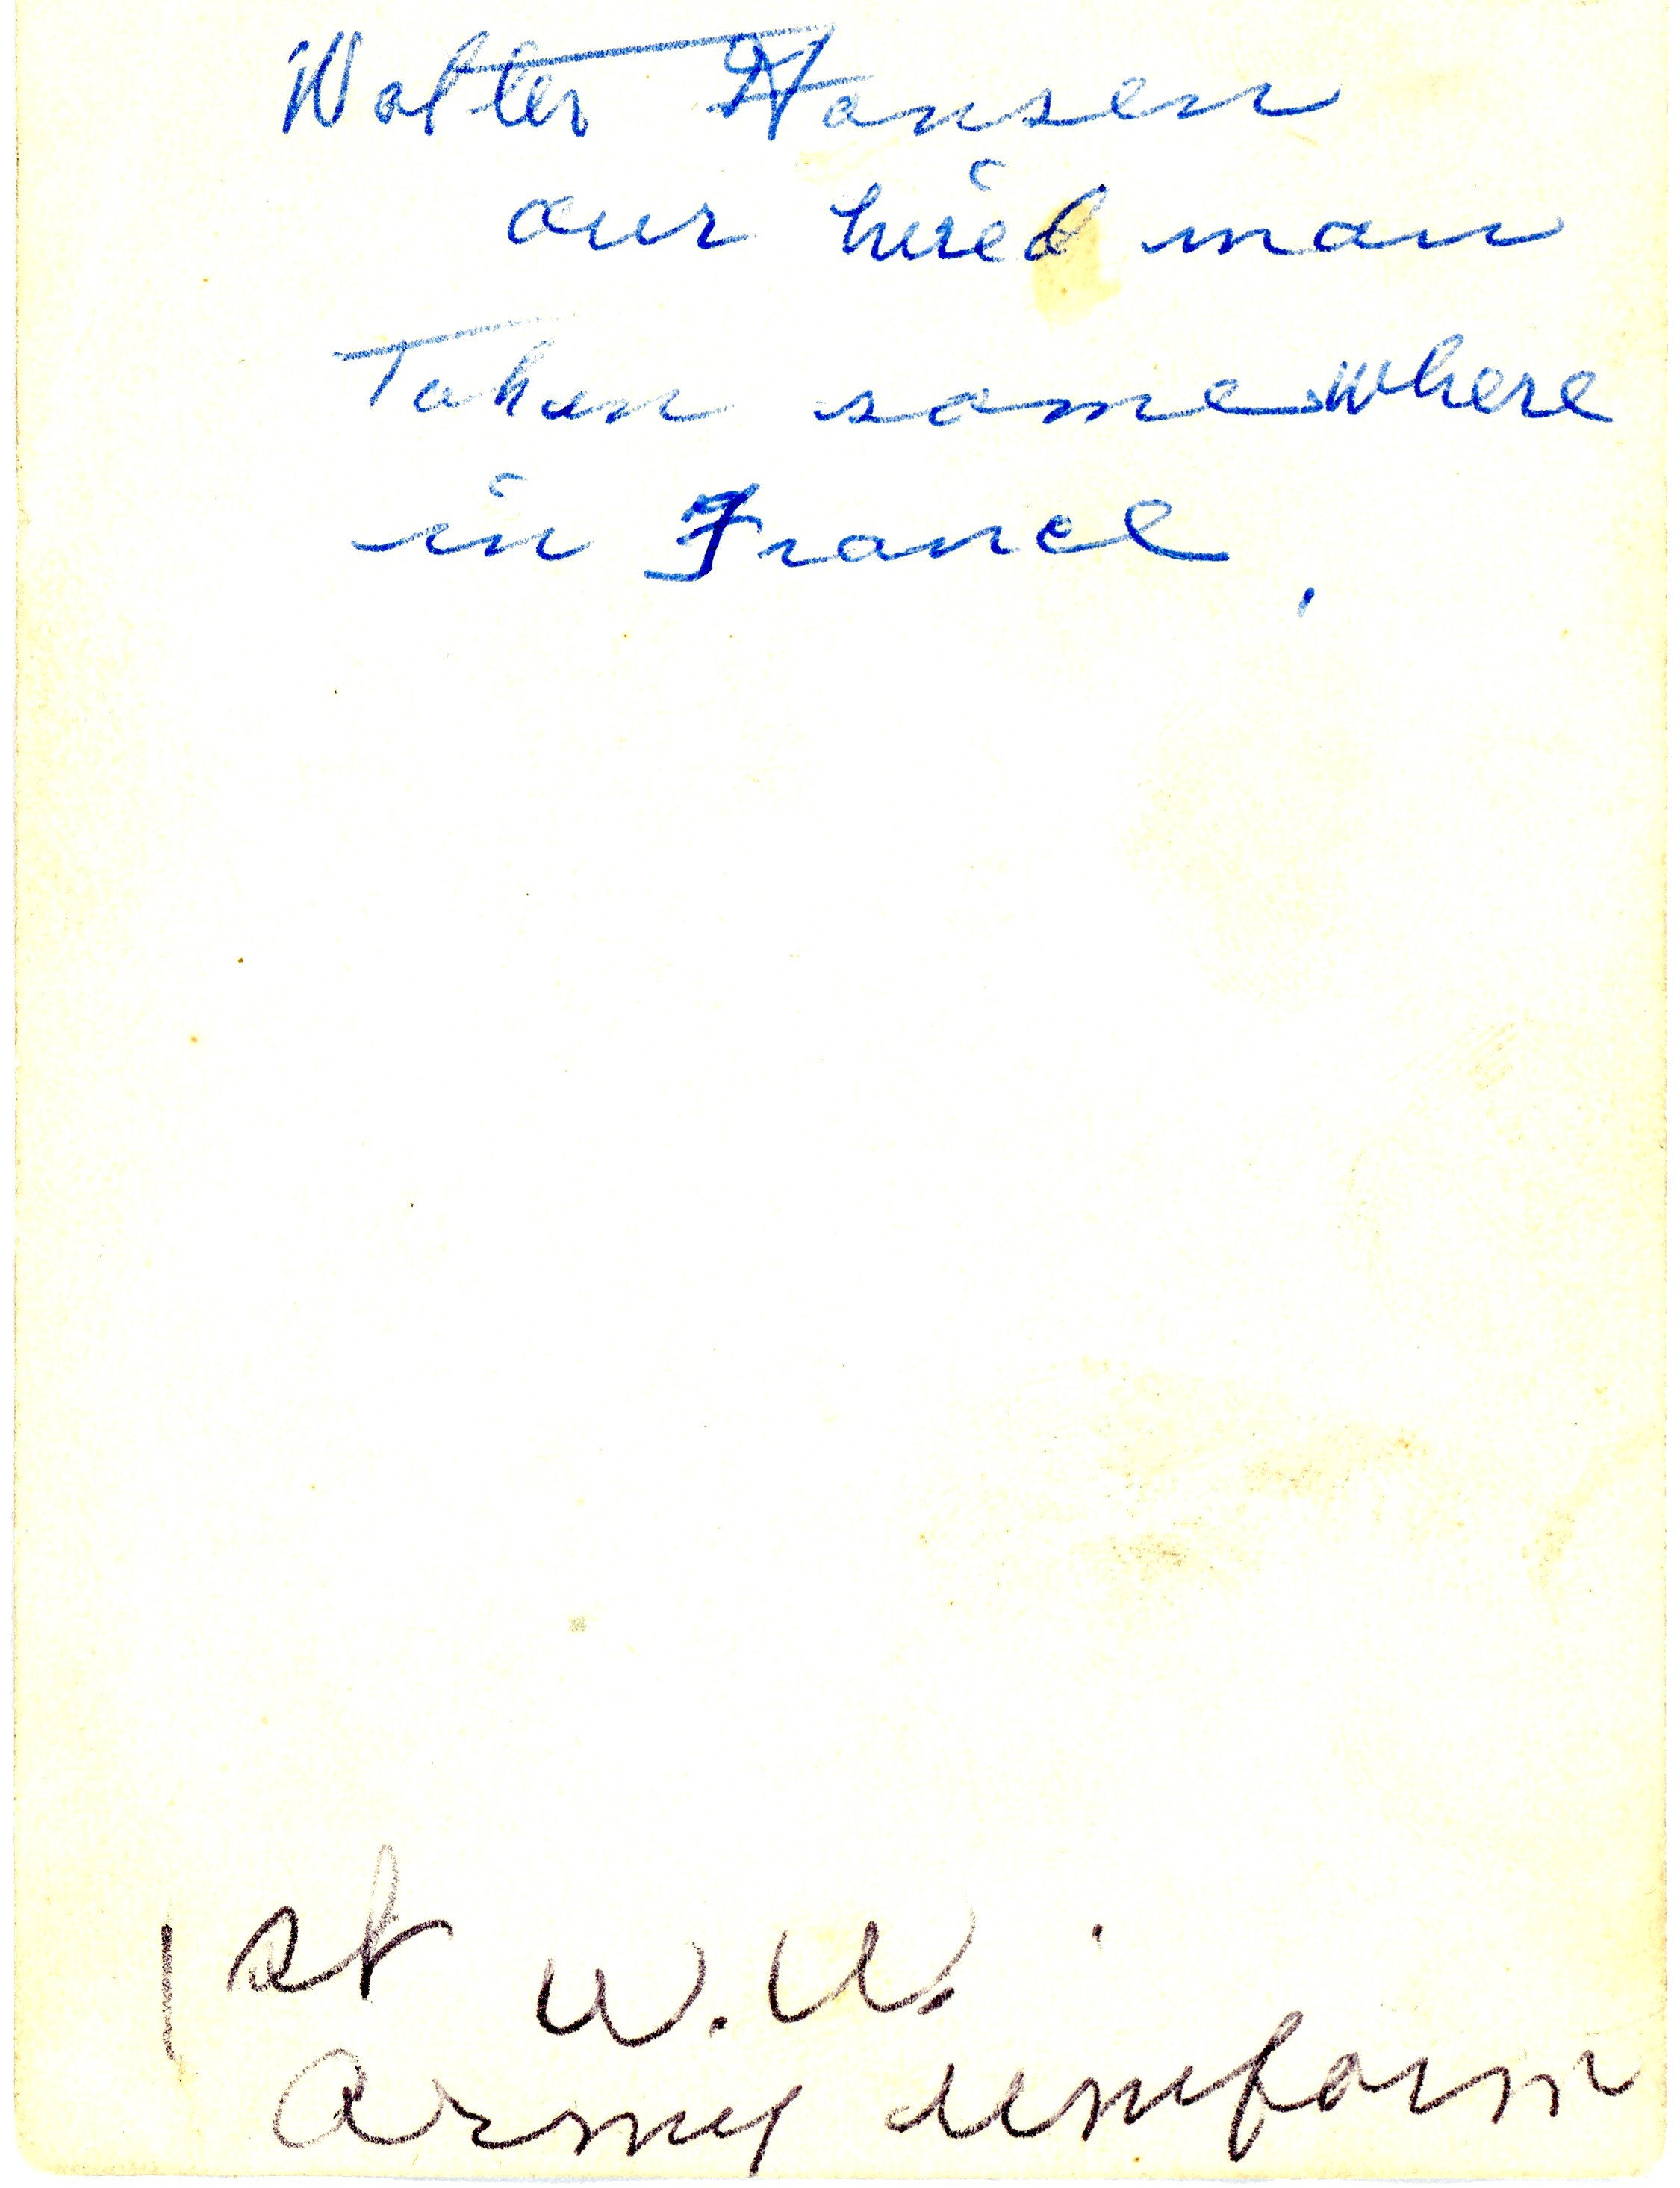 Walter Hansen
our hired man
Taken somewhere
in France.
1st W.W.
Army uniform